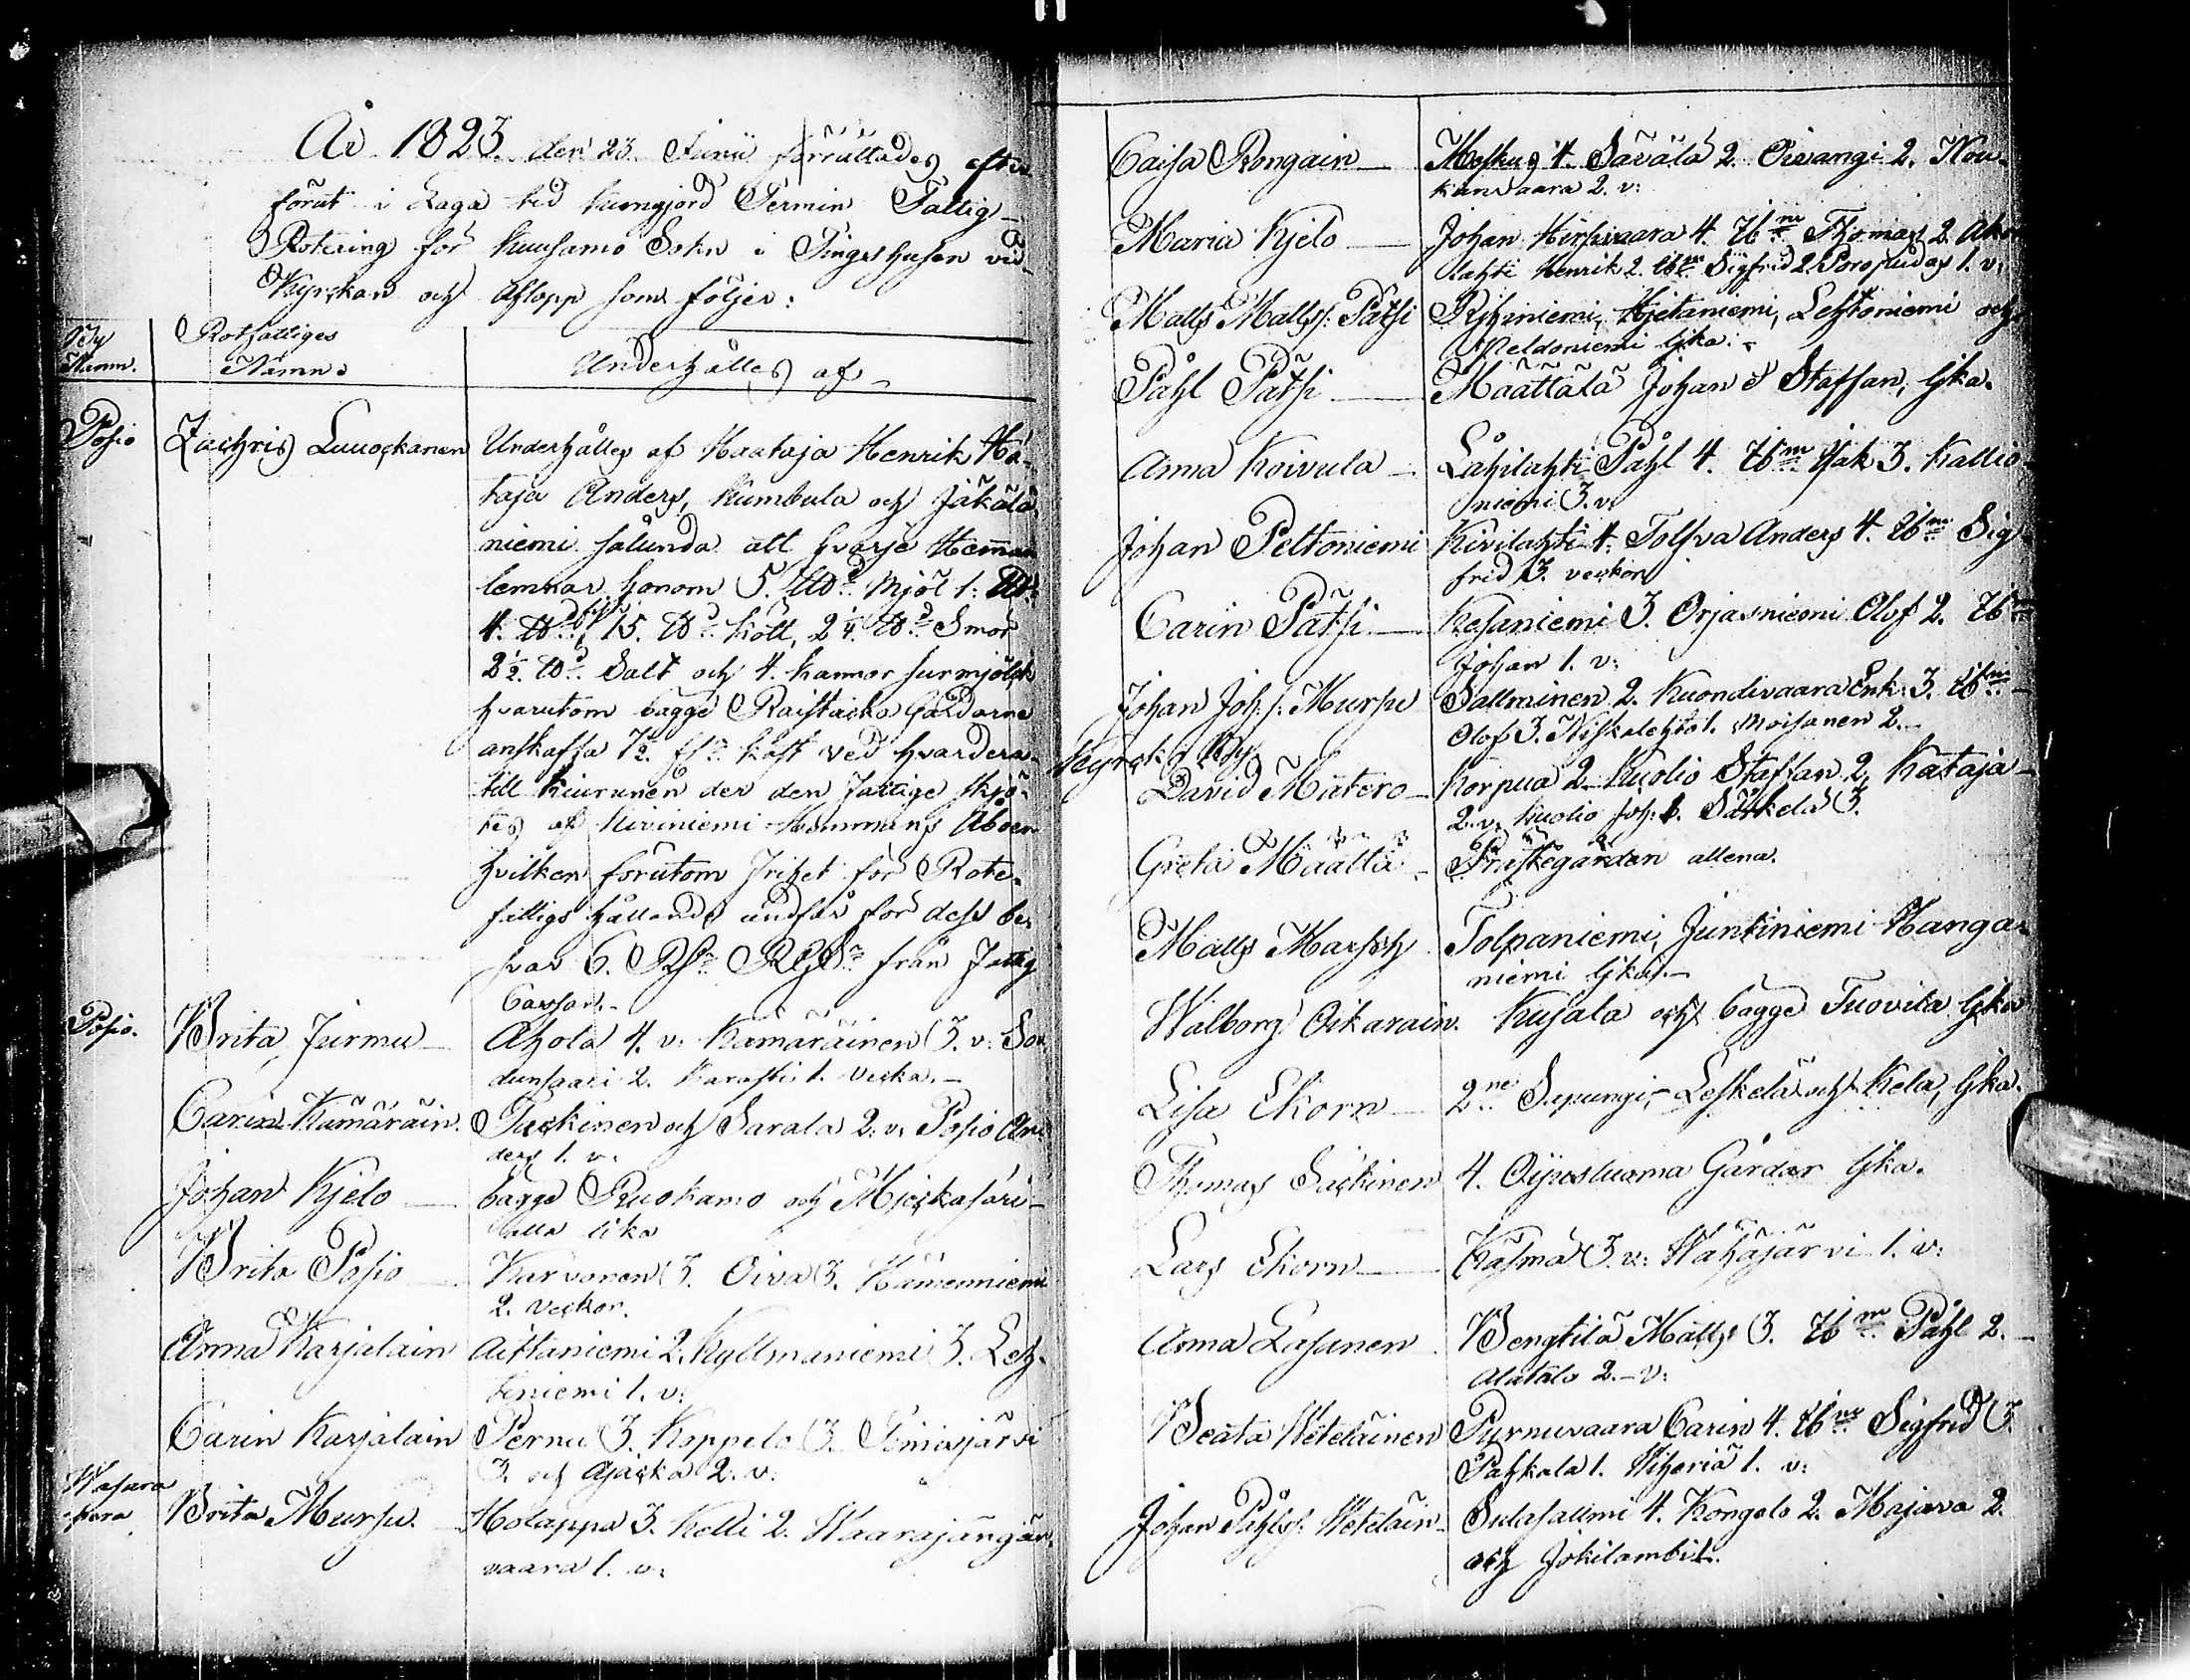 År 1823 den 23 Junii förrättades efter
förut i Laga tid kungjord Termin Fattig
Rotering för Kuusamo Sokn i Tingshusen vid
Kyrckan och aflopp som följer:
By Namn.
Rotfattiges Namn.
Underhålles af
Posio
Zachris Luuockanen
Underhålles af Haataja Henrik Ha-
taja Anders, Kumbula och Jäkälä
niemi sålunda att hvarje Hemman
lemnar honom 5. Mjöl 1:
4. 15. kött, 2 1/4 Smör
2 1/2 Salt och 4. kannor surmjölck
hvarutom bägge Raistacka Gårdarne
anskaffa 7 1/2 kast ved hvardera
till Kiurunen der den fattige skjö-
tes af Kiviniemi Hemmans Åboer
hvilken förutom frihet för Rote-
fattigs hållande undfår för dess be-
svär 6. från Fattig
Cassan.
Posio.
Brita Jurmu
Ahola 4. v: Kämäräinen 3. v: Sov-
dunsaari 2. Karasti 1. Vecka.
Carin Kämäräin.
Tuckinen och Sarala 2. v: Posio An-
ders 1. v:
Johan Kjelo
bägge Ruokamo och Mjöckäsäri
alla lika
Brita Posio
Karvonen 3. Oiva 3. Hämenniemi
2. Veckor.
Anna Karjalain
Aittaniemi 2. Kyllmäniemi 3. Leh-
toniemi 1. v:
Carin Karjalain
Pernu 3. Koppelo 3. Timisjärvi
3. och Ajacka 2. v:
Brita Mursu.
Holappa 3. Kelli 2. Waarajängän
vaara 1. v:
Caisa Rongain
Meskus 4. Säväla 2. Oivangi 2. Nou-
kanvaara 2. v:
Maria Kjelo
Johan Hirsivaara 4. Thomas 2. Aho
lahti Henrik 2. Sigfrid 2. 1. v:
Matts Mattss: Pätsi
Rihiniemi, Hjetaniemi, Lehtoniemi och
Peldoniemi lika.
Påhl Pätsi
Määttälä Johan & Staffan, lika.
Anna Koivula
Låhilahti Påhl 4. Isak 3. Kallio
niemi 3. v.
Johan Peltoniemi
Kivilahti 4. Tolfva Anders 4. Sig
frid 3. veckor
Carin Pätsi
Kesäniemi 3. Orjasniemi Olof 2.
Johan 1. v:
Johan Joh: s. Mursu
Sallminen 2. Kuondivaara Enk: 3.
Olof 3. Niskalehto 1. Moisanen 2.
Kyrck By
David Määtero
Korpua 2. Kuolio Staffan 2, Kataja
2. v. Kuolio Joh: Särkelä 3.
Greta Määttä
Prästegården allena.
Matts Marsch
Tolpaniemi, Juntiniemi Hanga-
niemi lika.
Walborg Oikarain.
Kujala och bägge Tuovila lika
Lisa Ekorn
2ne Sapungi, Leskelä och Kela, lika.
Thomas Säckinen
4. Oijusluoma Gårdar lika.
Lars Ekorn
Käsmä 3. v: Wähäjärvi 1. v:
Anna Lasanen
Bengtilä Matts 3. Påhl 2.
Alatalo 2. v:
Beata Wetelainen
Purnuvaara Carin 4. Sigfrid 3.
Pahkala 1. Wiheriä 1. v:
Johan Påhlss: Wetelain
Sulasallmi 4. Kongelo 2. Majava 2.
och Jokilambi 1.